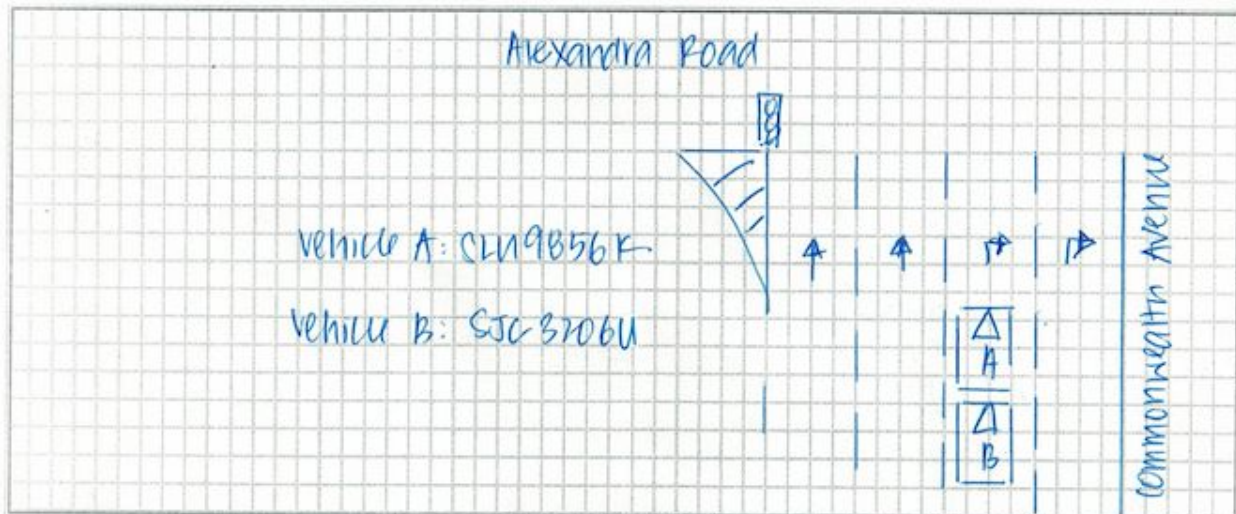 Alexandra Road
Vehicle A: SLU9856K
Vehicle B: SJC3206U
A
B
Commonwealth Avenue